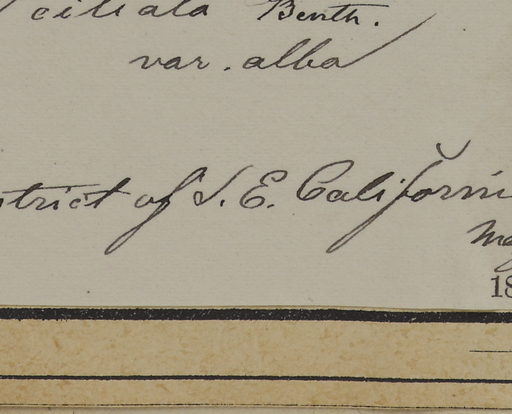 ciliata Benth.
var. alba
strict of S. E. Californi
Ma
18